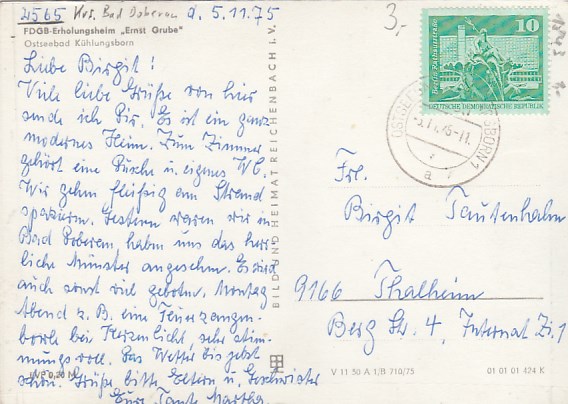 2565 Krs. Bad Doberan d. 5.11.75
FDGB-Erholungsheim „Ernst Grube"
Ostseebad Kühlungsborn
Liebe Birgit!
Viele liebe Grüße von hier
sende ich Dir. Es ist ein ganz
modernes Heim. Zum Zimmer
gehört eine Dusche u. eigenes WC.
Wir gehn fleißig am Strand
spazieren. Gestern waren wir in
Bad Doberan, haben uns das herr-
liche Münster angesehen. Es wird
auch sonst viel geboten. Montag
Abend z. B. eine Feuerzangen-
bowle bei Kerzenlicht, sehr stim-
mungsvoll. Das Wetter bis jetzt
schön. Grüße bitte Eltern u. Geschwister
Eure Tante Martha.
IVP 0,20 M
BILD UND HEIMAT REICHENBACH I. V.
3,-
10
DEUTSCHE DEMOKRATISCHE REPUBLIK
SBORN 1
-5.11.75-11
a
Frl.
Birgit Tautenhahn
9166 Thalheim
Berg Str. 4, Internat Zi. 1
V 11 50 A 1/B 710/75
01 01 01 424 K